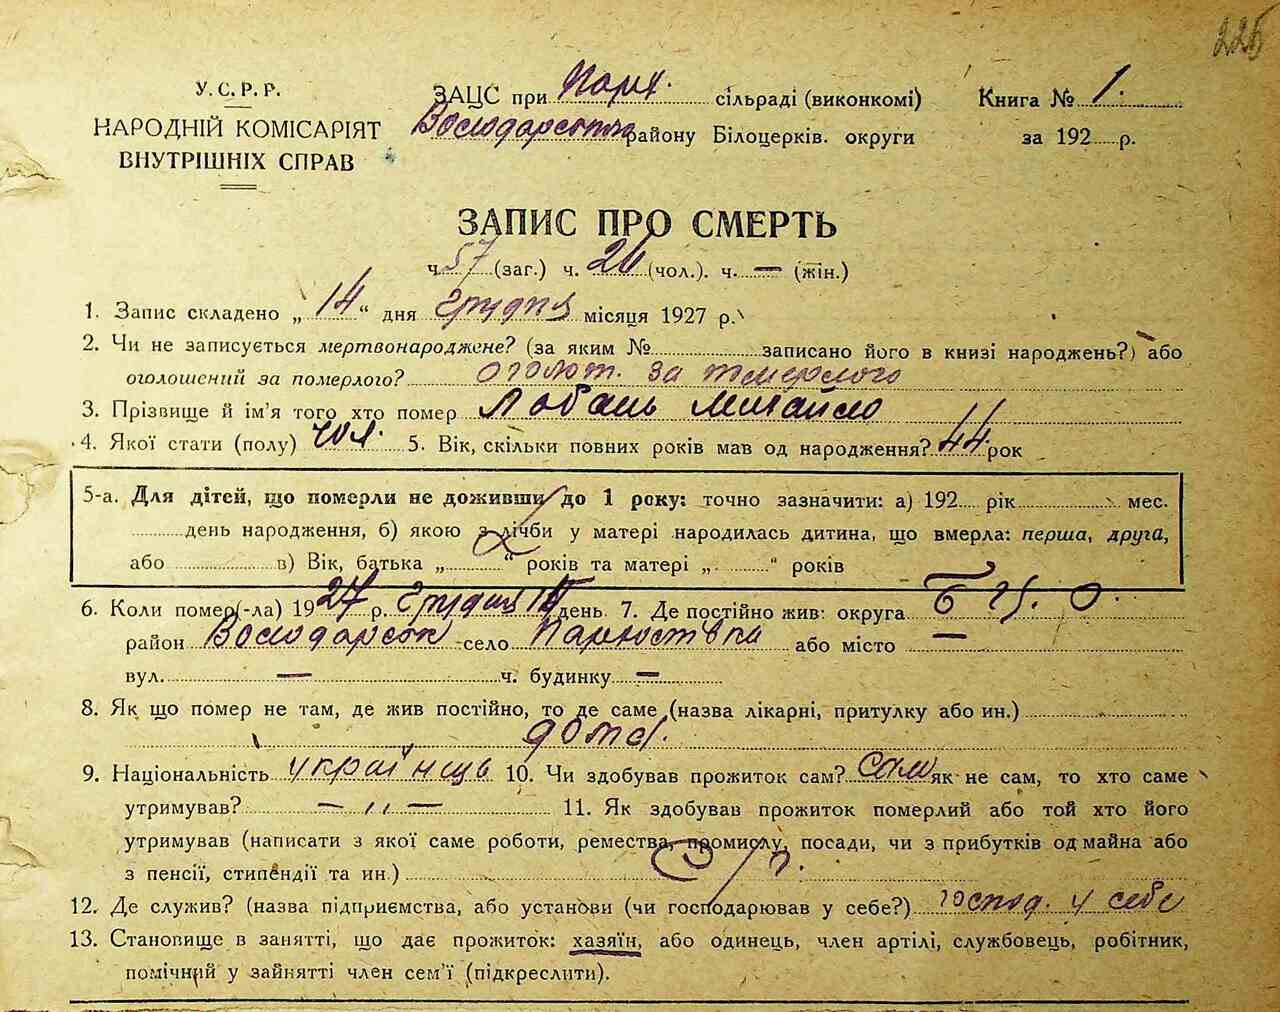 225
У.С.Р.Р.
НАРОДНІЙ КОМІСАРІЯТ
ВНУТРІШНІХ СПРАВ
ЗАЦС при Парх. сільраді (виконкомі)
Володарськ району Білоцерків. округи
Книга № 1.
за 192 р.
ЗАПИС ПРО СМЕРТЬ
ч. 57 (заг.) ч. 26 (чол.). ч. — (жін.)
1. Запис складено „ 14 “ дня Грудня місяця 1927 р.
2. Чи не записується мертвонароджене? (за яким № записано його в книзі народжень?) або
оголошений за померлого? оголош. за померлого
3. Прізвище й ім'я того хто помер Лобань Михайло
4. Якої стати (полу) чол. 5. Вік, скільки повних років мав од народження? 44 рок
5-а. Для дітей, що померли не доживши до 1 року: точно зазначити: а) 192 рік мес.
день народження, б) якою з лічби у матері народилась дитина, що вмерла: перша, друга,
або в) Вік, батька „ “ років та матері „ “ років
6. Коли помер(-ла) 1927 р. Грудня день 7. Де постійно жив: округа Б Ц. О.
район Володарськ село Пархомівка або місто —
вул. — ч. будинку —
8. Як що помер не там, де жив постійно, то де саме (назва лікарні, притулку або ин.)
дома.
9. Національність українець 10. Чи здобував прожиток сам? Сам як не сам, то хто саме
утримував? — „ — 11. Як здобував прожиток померлий або той хто його
утримував (написати з якої саме роботи, ремества, промислу, посади, чи з прибутків од майна або
з пенсії, стипендії та ин.)
12. Де служив? (назва підприємства, або установи (чи господарював у себе?) господ. у себе
13. Становище в занятті, що дає прожиток: хазяїн, або одинець, член артілі, службовець, робітник,
помічний у зайнятті член сем'ї (підкреслити).